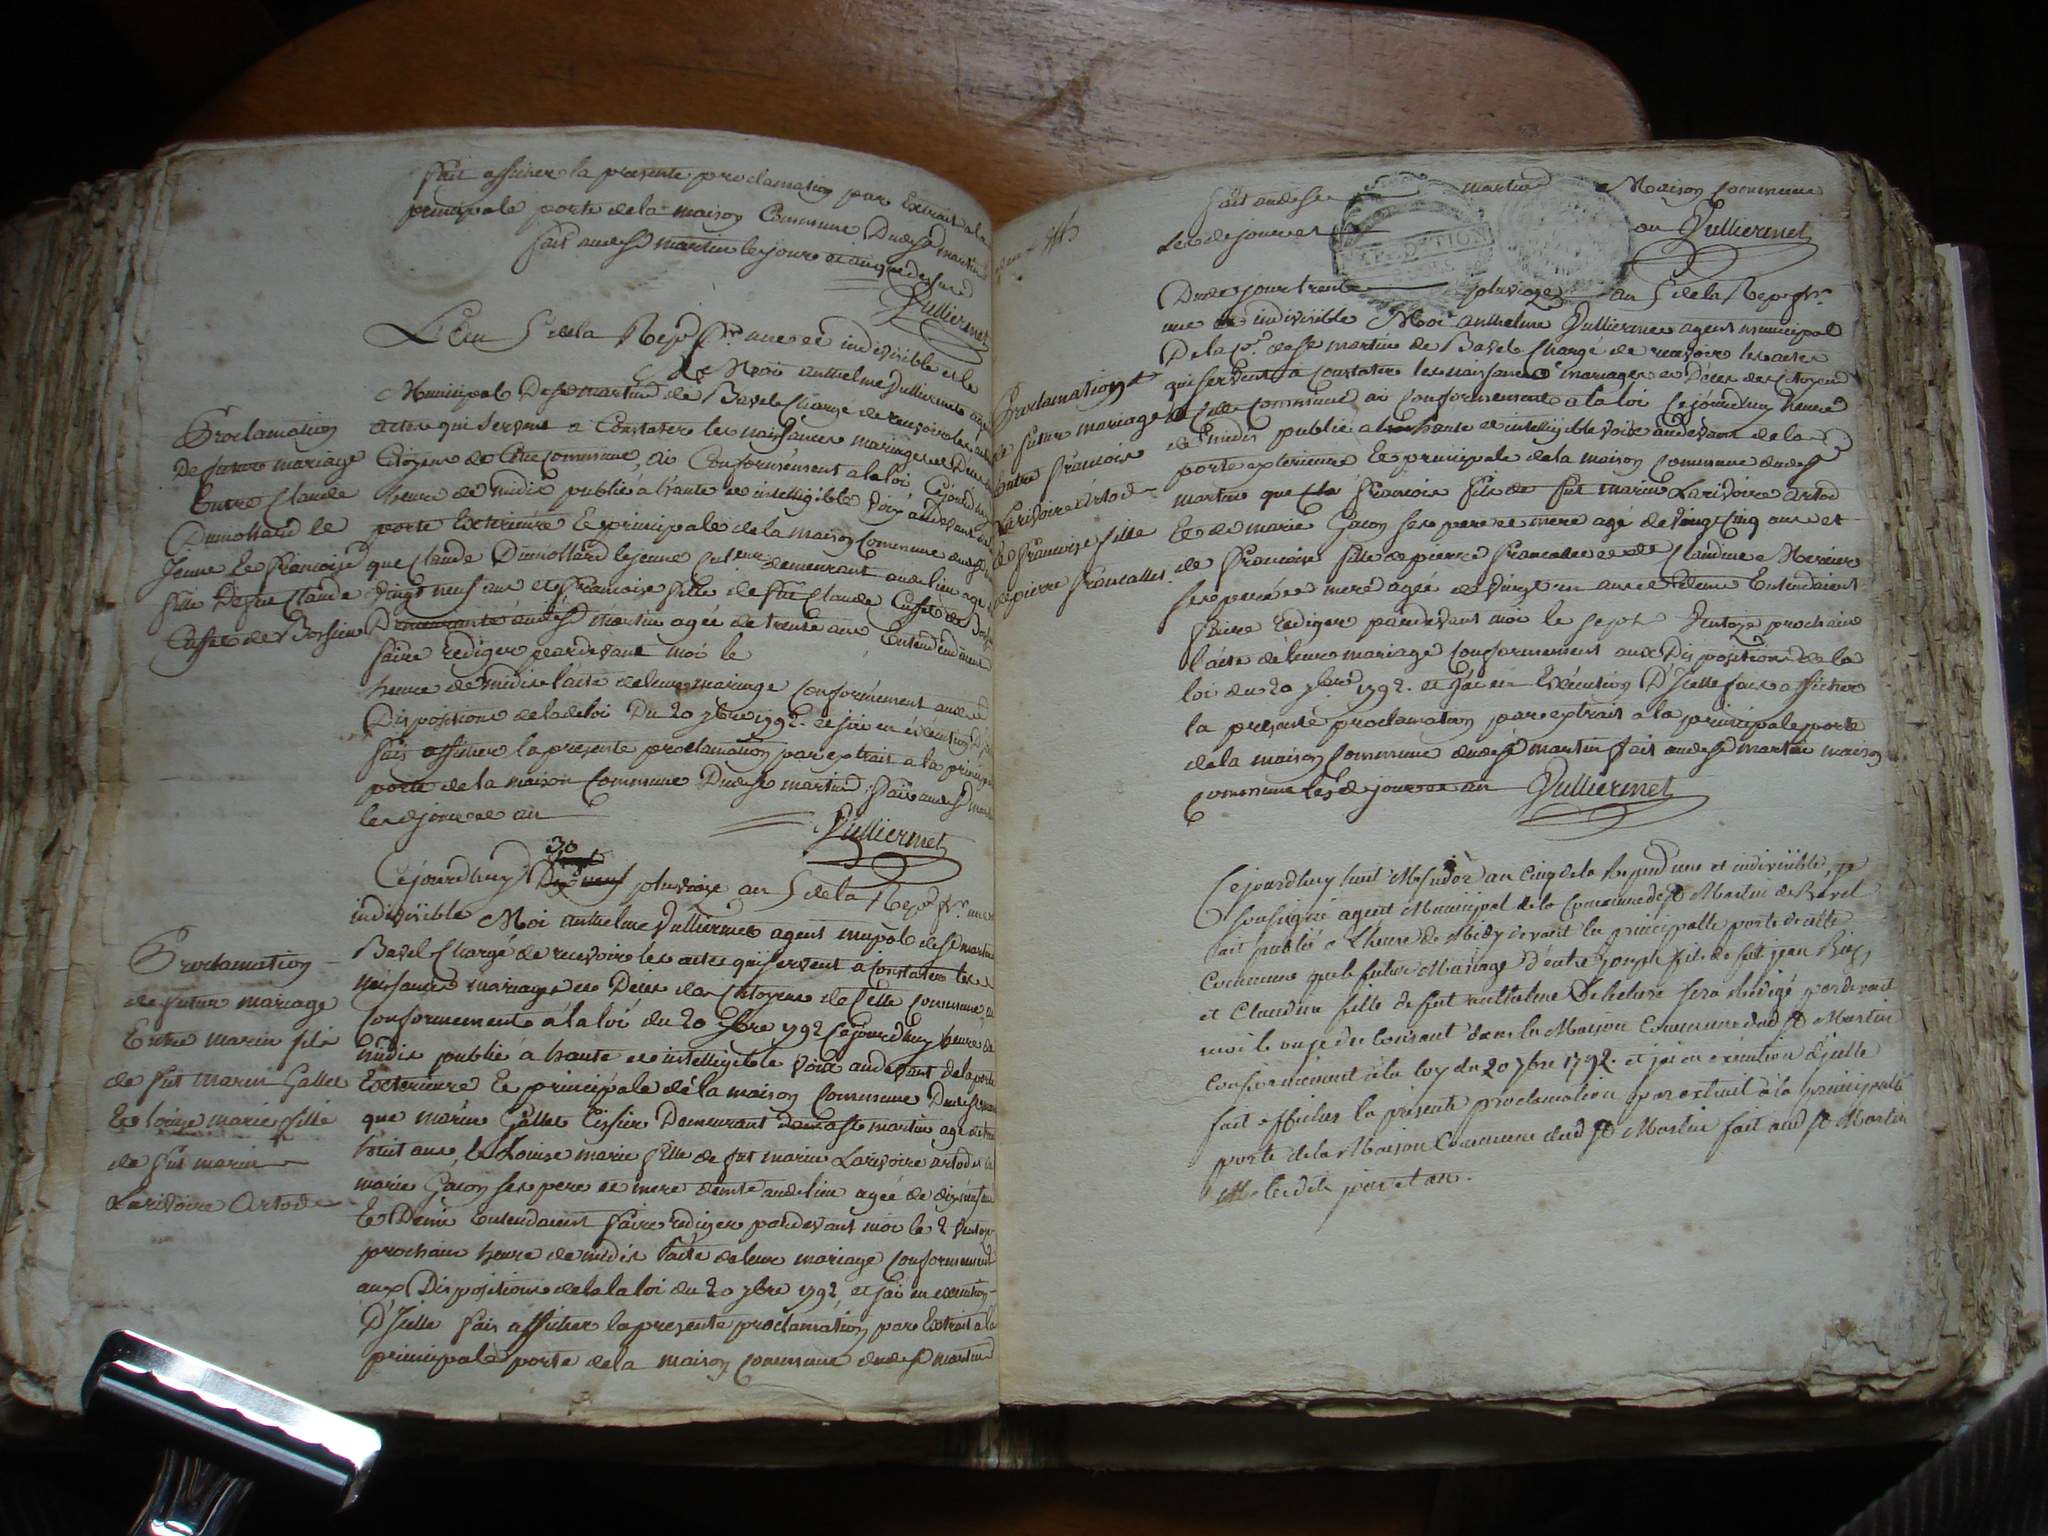 fait afficher la presente proclamation par Extrait a la
principale porte de la maison Commune Dudit St martin
fait audit St martin les jour et an que dessus
Vulliermet
L'an 5 de la Rep. fr. une et indivisible et le
Moi anthelme Vulliermet agent
Municipal De St martin de Bavel Chargé de recevoir les
actes qui servent a Constater les naissances mariages et Deces des
Citoyens de Cette commune, ai Conformément a la loi Cejourdhuy
heure de midi publié a haute et intelligible voix audevant de la
porte Exterieure Et principale de la maison Commune dudit St
que Claude Dumollard le jeune demeurant audit lieu agé de
vingt neuf ans et françoise fille de fut Claude Cusset de Bossieu
Demeurante audit St martin agée de trente ans Entendoient
faire rediger pardevant moi le
heure de midi l'acte de leur mariage Conformément aux
Dispositions de la de loi Du 20 7bre 1792. et j'ai en exécution D'jcelle
fait afficher la presente proclamation par extrait a la principale
porte de la maison Commune Dudit St martin, fait audit St martin
les d. jour et an
Vulliermet
Proclamation
De futur mariage
Entre Claude
Dumollard le
Jeune Et françoise
fille De fut Claude
Cusset de Bossieu
30
Cejourdhuy Dix neuf pluviose an 5 de la Rep. fr. une et
indivisible Moi anthelme Vulliermet agent mupal de St martin
Bavel Chargé de recevoir les actes qui servent a Constater les
naissances mariages et Deces des Citoyens de Cette Commune, ai
Conformement a la loi du 20 7bre 1792 Cejourdhuy heure de
midi publié a haute et intelligible voix audevant de la porte
Exterieure Et principale de la maison Commune Dudit St martin
que marin Gallet Tissier Demeurant St martin agé de
huit ans, & Louise marie fille de fut marin Larivoire artod et de
marie Gacon ses pere et mere audit lieu agée de dix neuf ans
Et Demi Entendoient faire rediger pardevant moi le 2 Ventose
prochain heure de midi l'acte de leur mariage Conformement
aux Dispositions de la la loi du 20 7bre 1792, et j'ai en execution
D'Jcelle fait afficher la presente proclamation par Extrait a la
principale porte de la maison Commune dudit St martin
Proclamation
de futur mariage
Entre marin fils
de fut marin Gallet
Et louise marie fille
de fut marin
Larivoire Artod
fait audit St martin Maison Commune
Les d. jour et an Vulliermet
Dudit jour trente pluviose an 5 de la Rep. fr.
une et indivisible Moi anthelme Vulliermet agent municipal
De la Co. de St martin de Bavel Chargé de recevoir les actes
qui servent a Constater les naissances mariages et Deces des Citoyens
de Cette Commune ai Conformement a la loi Cejourdhuy heure
de midi publié a haute et intelligible voix audevant de la
porte exterieure Et principale de la maison Commune dudit St
martin que françois fils de fut marin Larivoire artod
Et de marie Gacon ses pere et mere agé de vingt cinq ans et
de françoise fille de pierre francallet et de Claudine Merieux
ses pere et mere agée de vingt un ans et demi Entendoient
faire rediger pardevant moi le sept Ventose prochain
l'acte de leur mariage Conformement aux Dispositions de la
loi du 20 7bre 1792. et j'ai en Exécution D'Jcelle fait afficher
la presente proclamation par extrait a la principale porte
de la maison Commune dudit St martin fait audit St martin maison
Commune les d. jour et an Vulliermet
Proclamation
de futur mariage
Entre françois
Larivoire Artod
Et françoise fille
de pierre francallet
Cejourdhuy huit Messidor an cinq de la Rep. une et indivisible, je
soussigné agent Municipal de la Commune de St Martin de Bavel
fait publié a l'heure de Midy devant la principalle porte de cette
Commune que le futur Mariage d'entre joseph fils de fut jean
et Claudine fille de fut anthelme sera Rédigé pardevant
moi le onze du Courant dans la Maison Commune dud St Martin
Conformement à la loy du 20 7bre 1792. et j'ai en exécution d'jcelle
fait afficher la présente proclamation par extrait à la principalle
porte de la Maison Commune dud St Martin fait aud St Martin
lesdits jour et an.